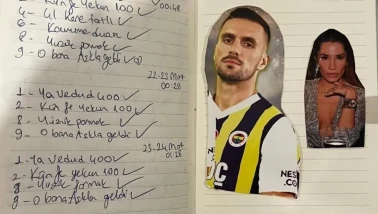 2 - Kün fe yekün 100 ✓ 00:48
4 - Gül kere tatlı ✓
6 - Kavuşma duası ✓
8 - Yüzük parmak ✓
9 - O bana Aşkla geldi ✓
22-23 Mart
00:28
1 - Ya Vedud 400 ✓
2 - Kün fe yekün 100 ✓
8 - Yüzük parmak ✓
9 - O bana Aşkla geldi ✓
23-24 Mart
01:28
1 - Ya Vedud 400 ✓
2 - Kün fe yekün 100 ✓
8 - Yüzük parmak ✓
9 - O bana Aşkla geldi ✓
NES
.CO